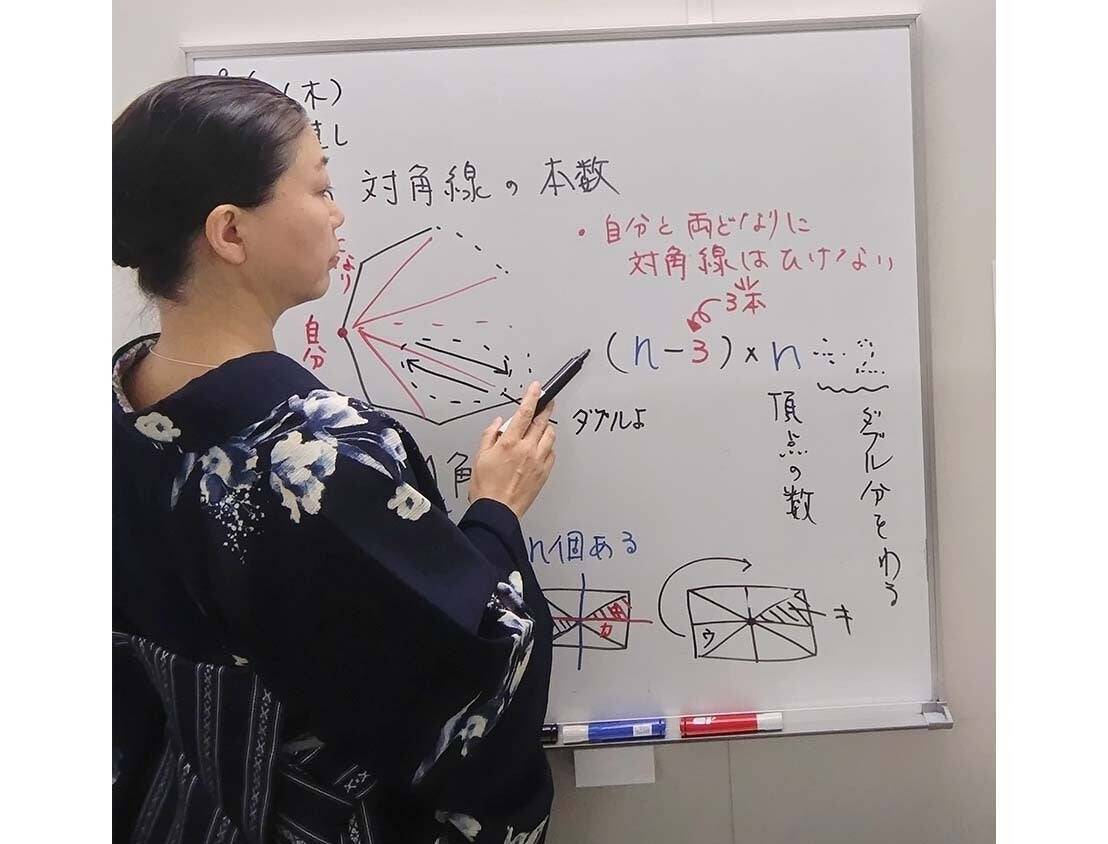 (木)
直し
対角線の本数
・自分と両どなりに
対角線はひけない
3本
(n-3)×n÷2
となり
自分
ダブルよ
頂点の数
ダブル分をわる
角
n個ある
カ
ウ
キ